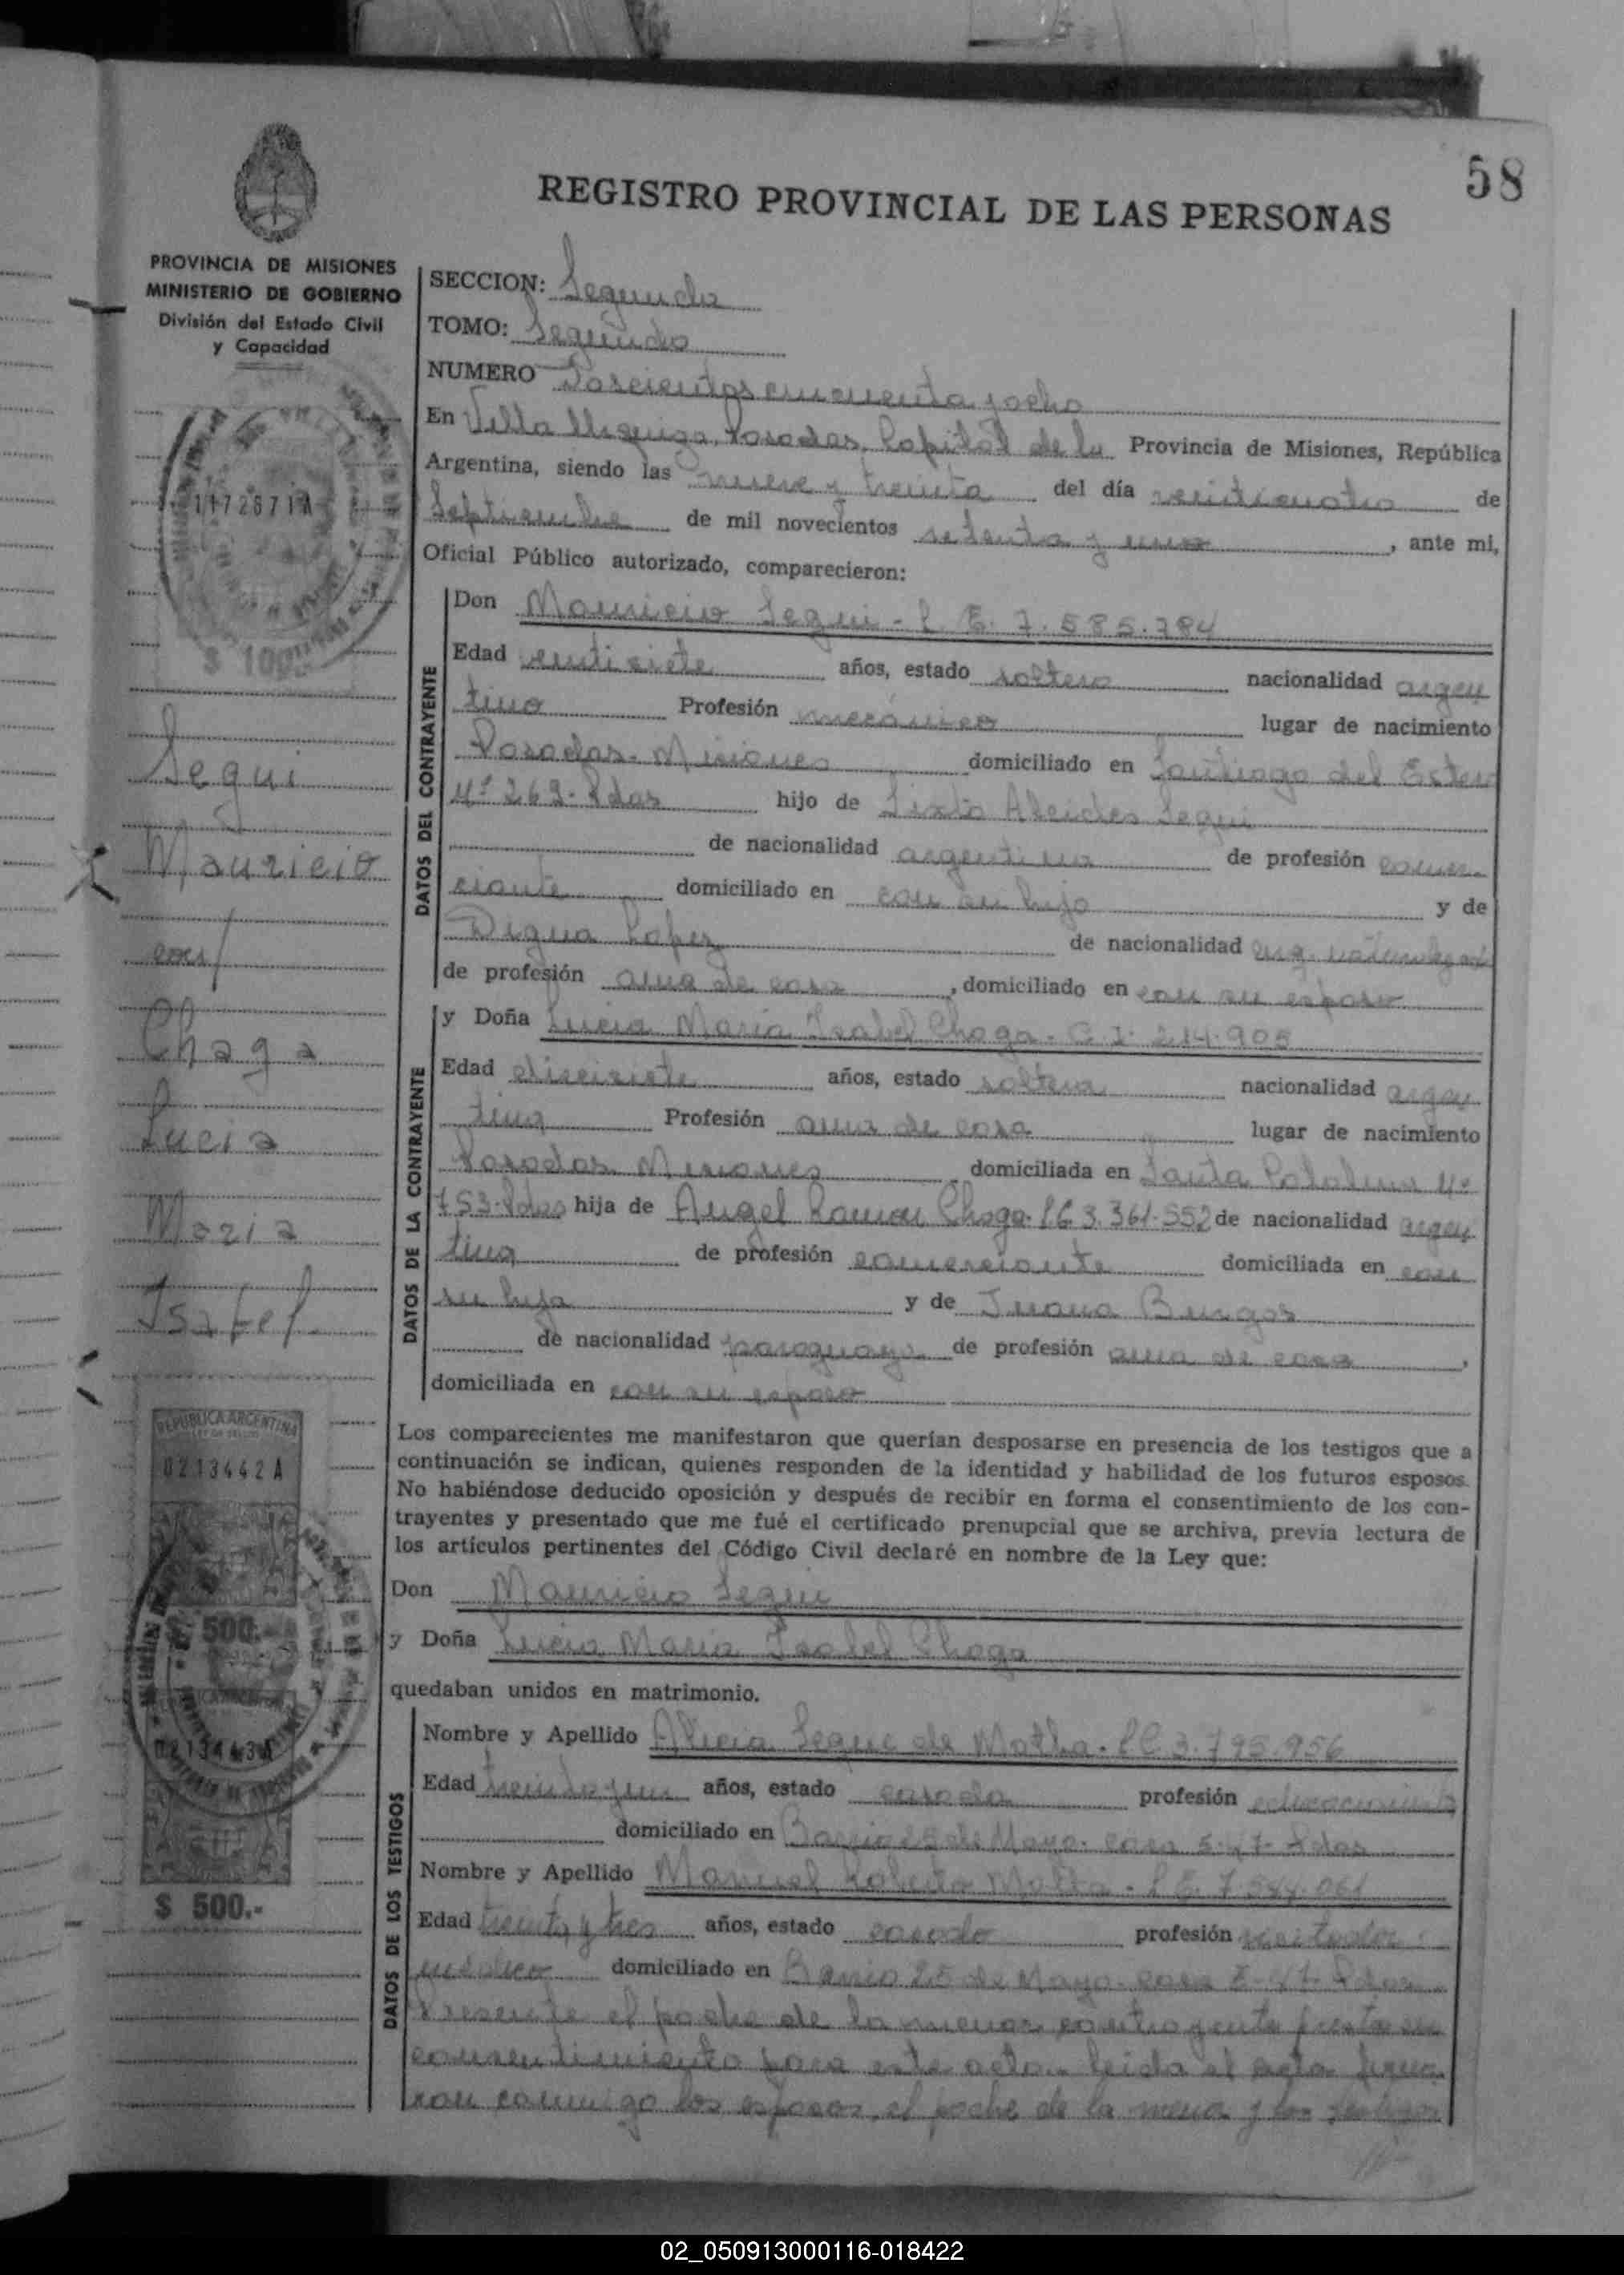 58
REGISTRO PROVINCIAL DE LAS PERSONAS
PROVINCIA DE MISIONES
MINISTERIO DE GOBIERNO
División del Estado Civil
y Capacidad
1172871A
$ 100
Segui
Mauricio
con/
Chaga
Lucia
Maria
Isabel
REPUBLICA ARGENTINA
0213442A
$ 500.-
0213443A
$ 500.-
SECCION: Segunda
TOMO: Segundo
NUMERO Doscientos cincuenta y ocho
En Villa Urquiza, Posadas, Capital de la Provincia de Misiones, República
Argentina, siendo las nueve y treinta del día veinticuatro de
Septiembre de mil novecientos setenta y uno, ante mi,
Oficial Público autorizado, comparecieron:
DATOS DEL CONTRAYENTE
Don Mauricio Segui - L. E. 7.585.784
Edad veintisiete años, estado soltero nacionalidad argen
tino Profesión mecánico lugar de nacimiento
Posadas - Misiones domiciliado en Santiago del Estero
Nº 269 - Pdas hijo de Sixto Alcides Segui
de nacionalidad argentina de profesión comer
ciante domiciliado en con su hijo y de
Digna Lopez de nacionalidad arg.
de profesión ama de casa, domiciliado en con su esposo
DATOS DE LA CONTRAYENTE
y Doña Lucia Maria Isabel Chaga - C. I. 214.905
Edad diecisiete años, estado soltera nacionalidad argen
tina Profesión ama de casa lugar de nacimiento
Posadas Misiones domiciliada en Santa Catalina Nº
753 - Pdas hija de Angel Ramon Chaga - L E 3.361.552 de nacionalidad argen
tina de profesión comerciante domiciliada en con
su hija y de Juana Burgos
de nacionalidad paraguaya de profesión ama de casa,
domiciliada en con su esposo
Los comparecientes me manifestaron que querían desposarse en presencia de los testigos que a
continuación se indican, quienes responden de la identidad y habilidad de los futuros esposos.
No habiéndose deducido oposición y después de recibir en forma el consentimiento de los con-
trayentes y presentado que me fué el certificado prenupcial que se archiva, previa lectura de
los artículos pertinentes del Código Civil declaré en nombre de la Ley que:
Don Mauricio Segui
y Doña Lucia Maria Isabel Chaga
quedaban unidos en matrimonio.
DATOS DE LOS TESTIGOS
Nombre y Apellido Alicia Segui de Motta - L C 3.795.956
Edad treinta y un años, estado casada profesión
domiciliado en Barrio 25 de Mayo - casa - Pdas
Nombre y Apellido Manuel Roberto Motta - L E 7.544.061
Edad treinta y tres años, estado casado profesión visitador
médico domiciliado en Barrio 25 de Mayo - casa - Pdas
Presente el padre de la menor contrayente presta su
consentimiento para este acto - Leida el acta firma
ron conmigo los esposos, el padre de la menor y los testigos
02_050913000116-018422